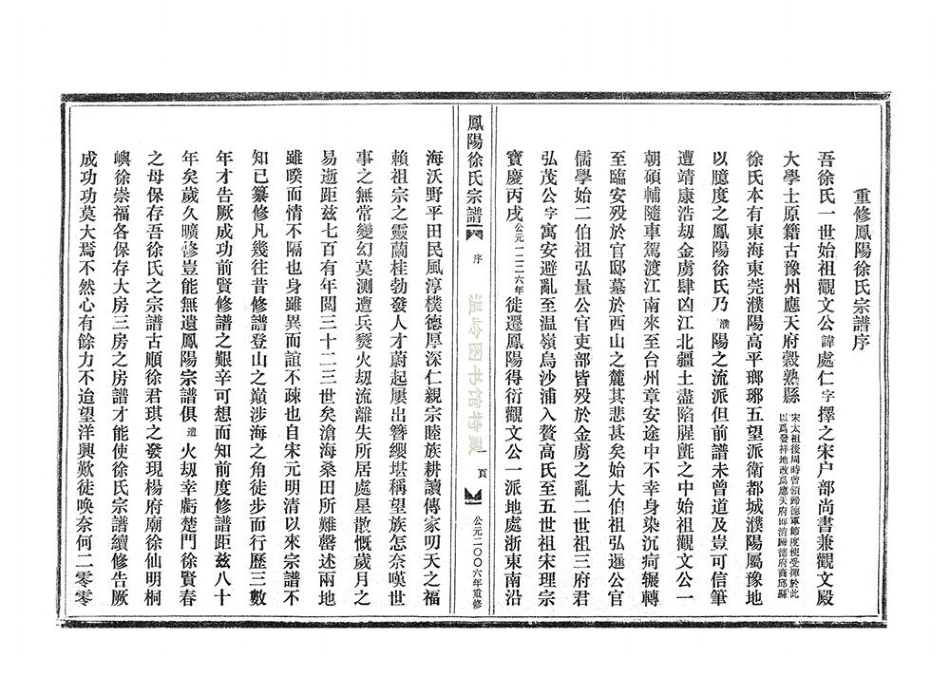 重修鳳陽徐氏宗譜序
吾徐氏一世始祖觀文公諱處仁字擇之宋户部尚書兼觀文殿
大學士原籍古豫州應天府穀熟縣宋太祖後周時曾領歸德軍節度使受禪於此以爲發祥地改爲應天府即清歸德府商邱縣
徐氏本有東海東莞濮陽高平瑯琊五望派衛都城濮陽屬豫地
以臆度之鳳陽徐氏乃濮陽之流派但前譜未曾道及豈可信筆
遭靖康浩刼金虜肆凶江北疆土盡陷腥氈之中始祖觀文公一
朝碩輔隨車駕渡江南來至台州章安途中不幸身染沉疴輾轉
至臨安殁於官邸墓於西山之麓其悲甚矣始大伯祖弘邇公官
儒學始二伯祖弘量公官吏部皆殁於金虜之亂二世祖三府君
弘茂公字寓安避亂至温嶺烏沙浦入贅高氏至五世祖宋理宗
寶慶丙戌公元一二二六年徙遷鳳陽得衍觀文公一派地處浙東南沿
鳳陽徐氏宗譜
序
温岭图书馆特藏
一頁
公元二〇〇六年重修
海沃野平田民風淳樸德厚深仁親宗睦族耕讀傳家叨天之福
賴祖宗之靈蘭桂勃發人才蔚起屢出簪纓堪稱望族怎奈嘆世
事之無常變幻莫測遭兵燹火刼流離失所居處星散慨歲月之
易逝距兹七百有年閲三十二三世矣滄海桑田所難罄述兩地
雖暌而情不隔也身雖異而誼不疎也自宋元明清以來宗譜不
知已纂修凡幾往昔修譜登山之巔涉海之角徒步而行歷三數
年才告厥成功前賢修譜之艱辛可想而知前度修譜距兹八十
年矣歲久曠修豈能無遺鳳陽宗譜俱遭火刼幸虧楚門徐賢春
之母保存吾徐氏之宗譜古順徐君琪之發現楊府廟徐仙明桐
嶼徐崇福各保存大房三房之房譜才能使徐氏宗譜續修告厥
成功功莫大焉不然心有餘力不逮望洋興歎徒唤奈何二零零